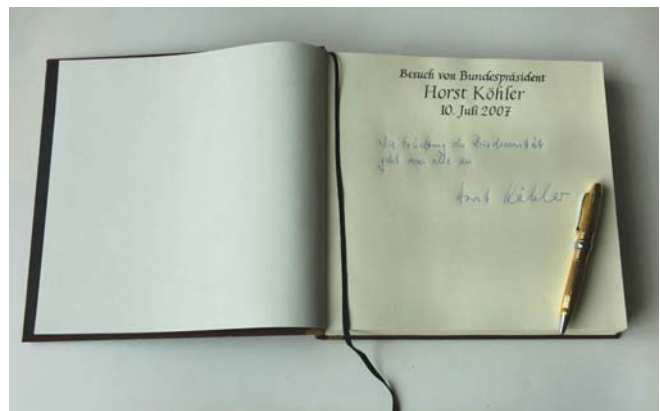 Besuch von Bundespräsident
Horst Köhler
10. Juli 2007
Die Erhaltung der Biodiversität
geht uns alle an
Horst Köhler